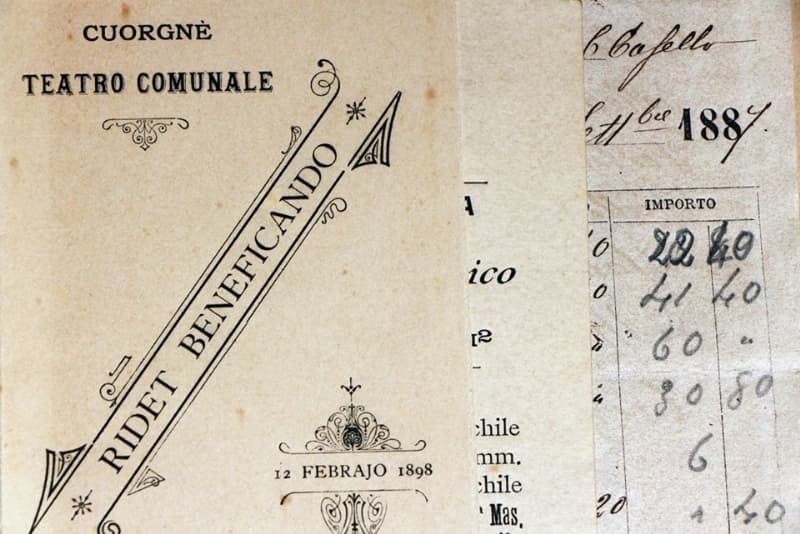 CUORGNÈ
TEATRO COMUNALE
RIDET BENEFICANDO
12 FEBRAJO 1898
A
ico
chile
mm.
chile
Mas.
1887.
IMPORTO
0 22 40
0 41 40
" 60 "
" 30 80
6
20 " 40